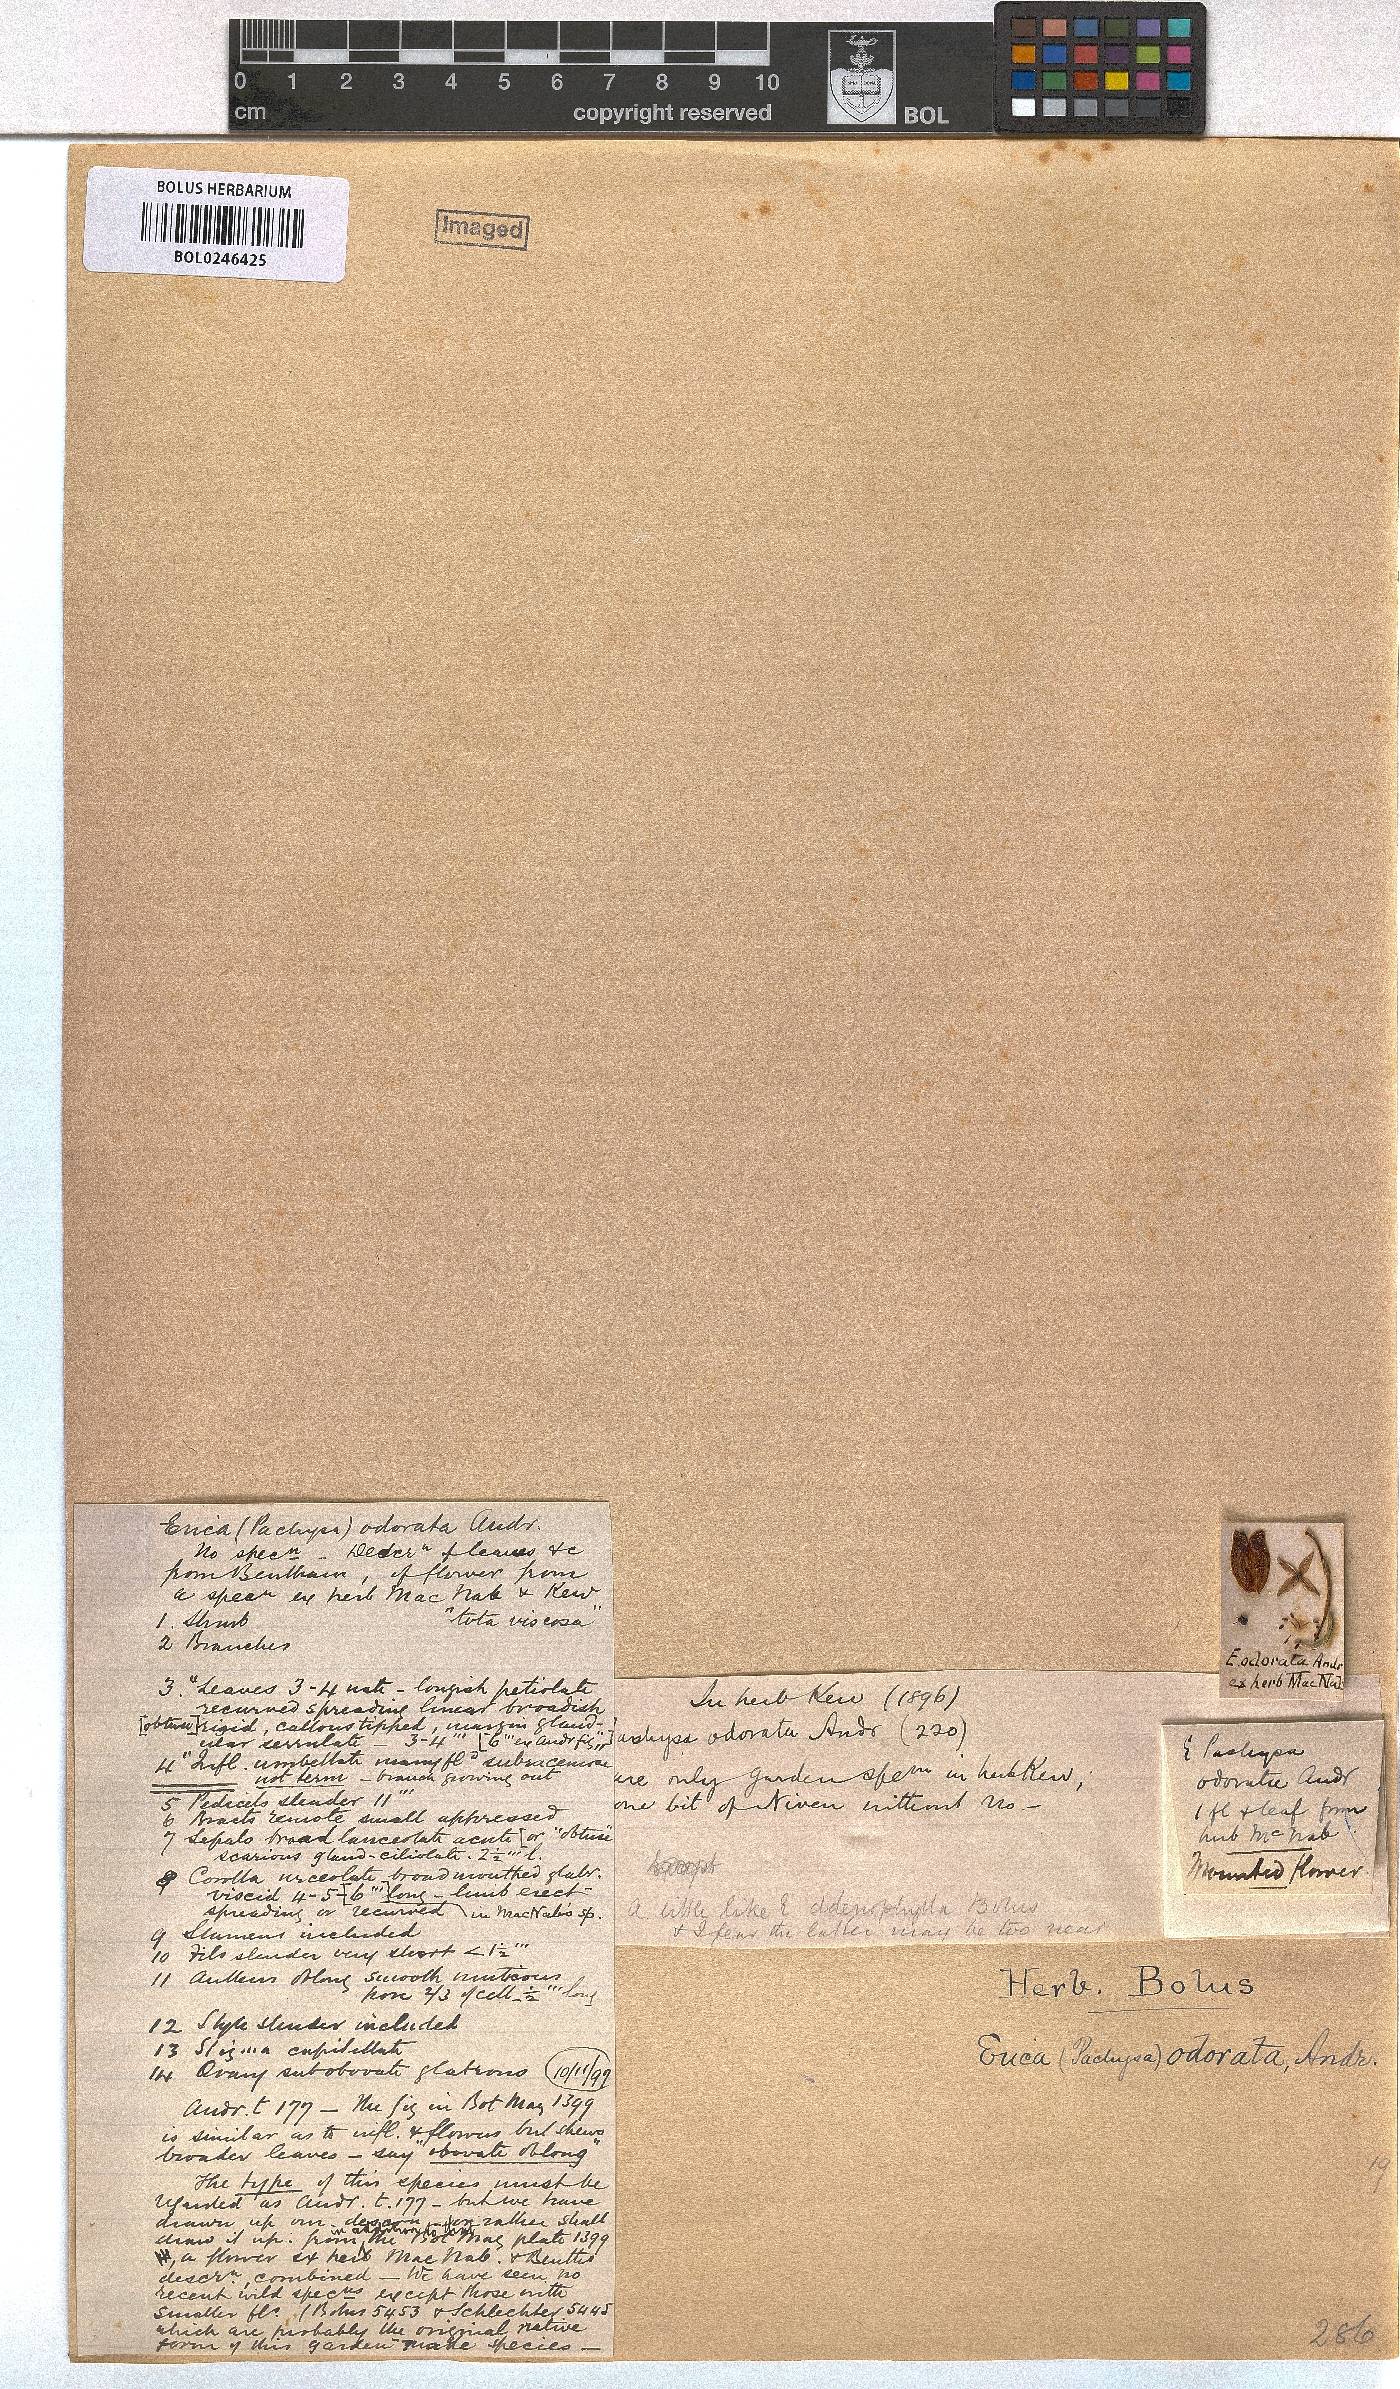 0 1 2 3 4 5 6 7 8 9 10
cm copyright reserved BOL
BOLUS HERBARIUM
BOL0246425
Imaged
Erica (Pachysa) odorata Andr.
No specn - Descrn of leaves &c
from Bentham, of flower from
a specn ex herb MacNab & Kew
1. Shrub "tota viscosa"
2 Branches
3. "Leaves 3-4 nate - longish petiolate
recurved spreading linear broadish
[obtuse] rigid, callous tipped, margin gland-
ular serrulate - 3-4''' [6''' in Andr fig]"
4 "Infl. umbellate many fld subracemose
not term - branch growing out
5 Pedicels slender 11'''
6 Bracts remote small appressed
7 Sepals broad lanceolate acute [or "obtuse"
scarious gland-ciliolate. 2½''' l.
8 Corolla urceolate broad mouthed glabr.
viscid 4-5-[6'''] long - limb erect-
spreading or recurved in MacNab's sp.
9 Stamens included
10 Fils slender very short < 1½'''
11 Anthers oblong smooth muticous
pore 2/3 of cell ½''' long
12 Style slender included
13 Stigma capitellate
14 Ovary subobovate glabrous 10/11/99
Andr. t 177 - The fig in Bot Mag 1399
is similar as to infl. & flowers but shews
broader leaves - say "obovate oblong"
The type of this species must be
regarded as Andr. t. 177 - but we have
drawn up our descrn or rather shall
draw it up. from the Bot Mag plate 1399
a flower ex herb MacNab. & Benth's
descrn, combined - We have seen no
recent wild specns except those with
smaller fls. (Bolus 5453 & Schlechter 5445
which are probably the original native
form of this garden made species -
In herb Kew (1896)
achysa odorata Andr (220)
are only Garden specm in herb Kew,
one bit of Niven without no -
A little like E adenophylla Bolus
& I fear the latter may be too near
E. odorata Andr
ex herb MacNab
E Pachysa
odorata Andr
1 fl & leaf from
herb McNab
Mounted flower
Herb. Bolus
Erica (Pachysa) odorata, Andr.
19
286